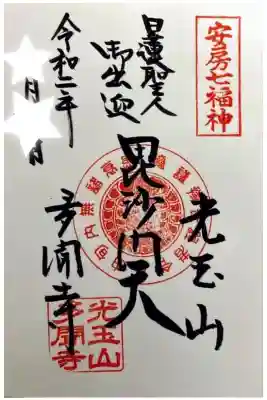 安房七福神
日蓮聖人
御出迎
毘沙門天
光玉山
多聞寺
令和二年
月 日
光玉山
多聞寺